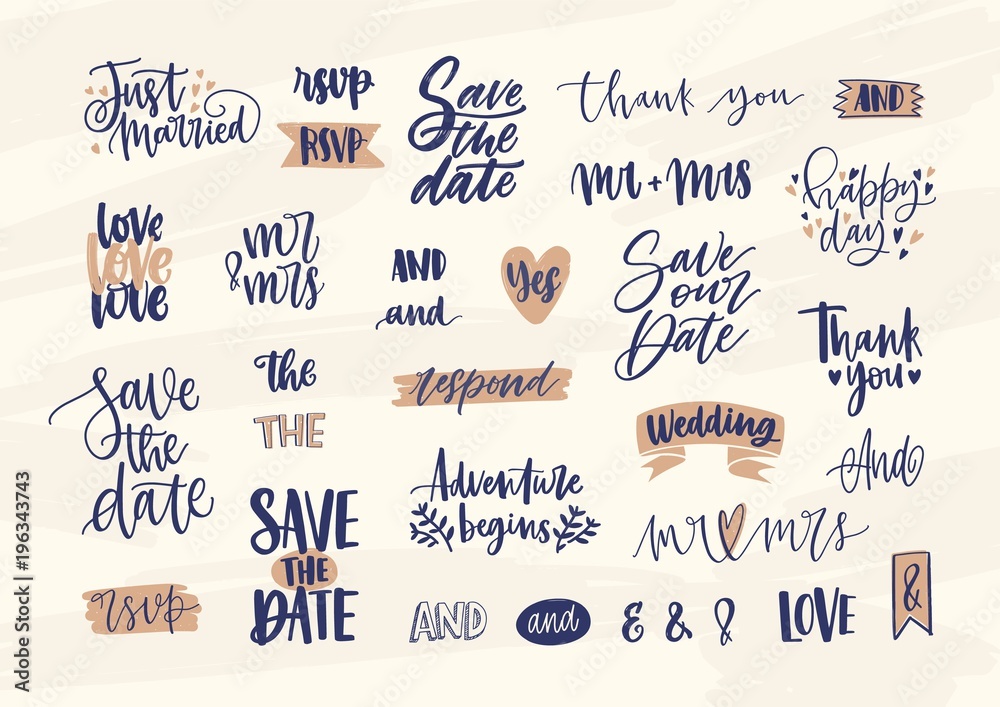 Just
Married
rsvp
RSVP
Save
the
date
thank you
AND
mr + mrs
happy
day
love
love
love
mr
& mrs
AND
and
yes
Save
our
Date
Thank
you
Save
the
date
the
THE
respond
Wedding
And
Adventure
begins
mr mrs
SAVE
THE
DATE
rsvp
AND
and
& & &
LOVE
&
Adobe Stock | #196343743